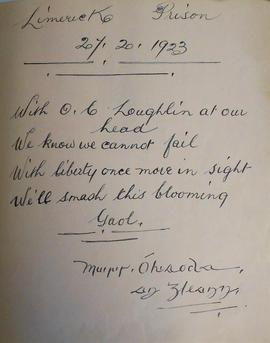 Limerick Prison
27. 20. 1923
With O. C Loughlin at our
head
We know we cannot fail
With liberty once more in sight
We'll smash this blooming
Gaol.